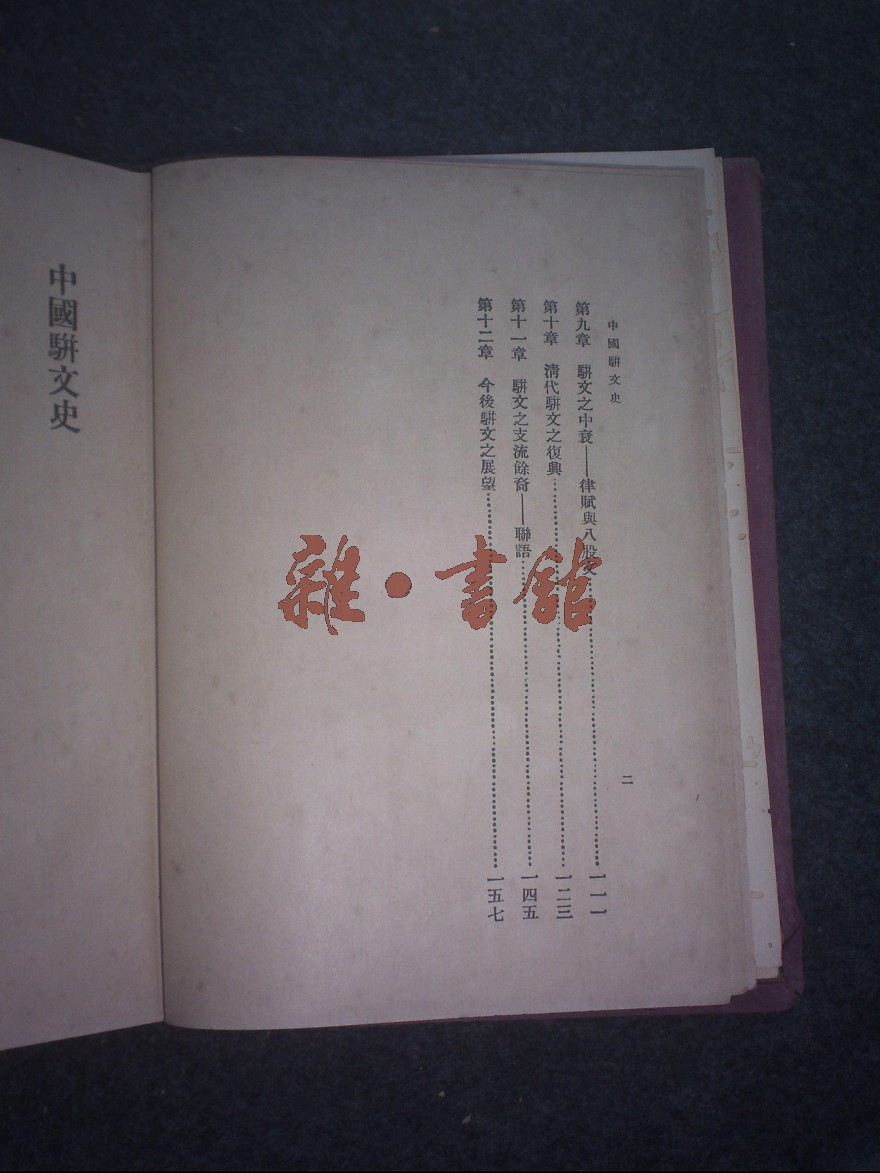 中國駢文史
第九章　駢文之中衰——律賦與八股文……一一一
第十章　清代駢文之復興……一二三
第十一章　駢文之支流餘裔——聯語……一四五
第十二章　今後駢文之展望……一五七
二
中國駢文史
雜·書館